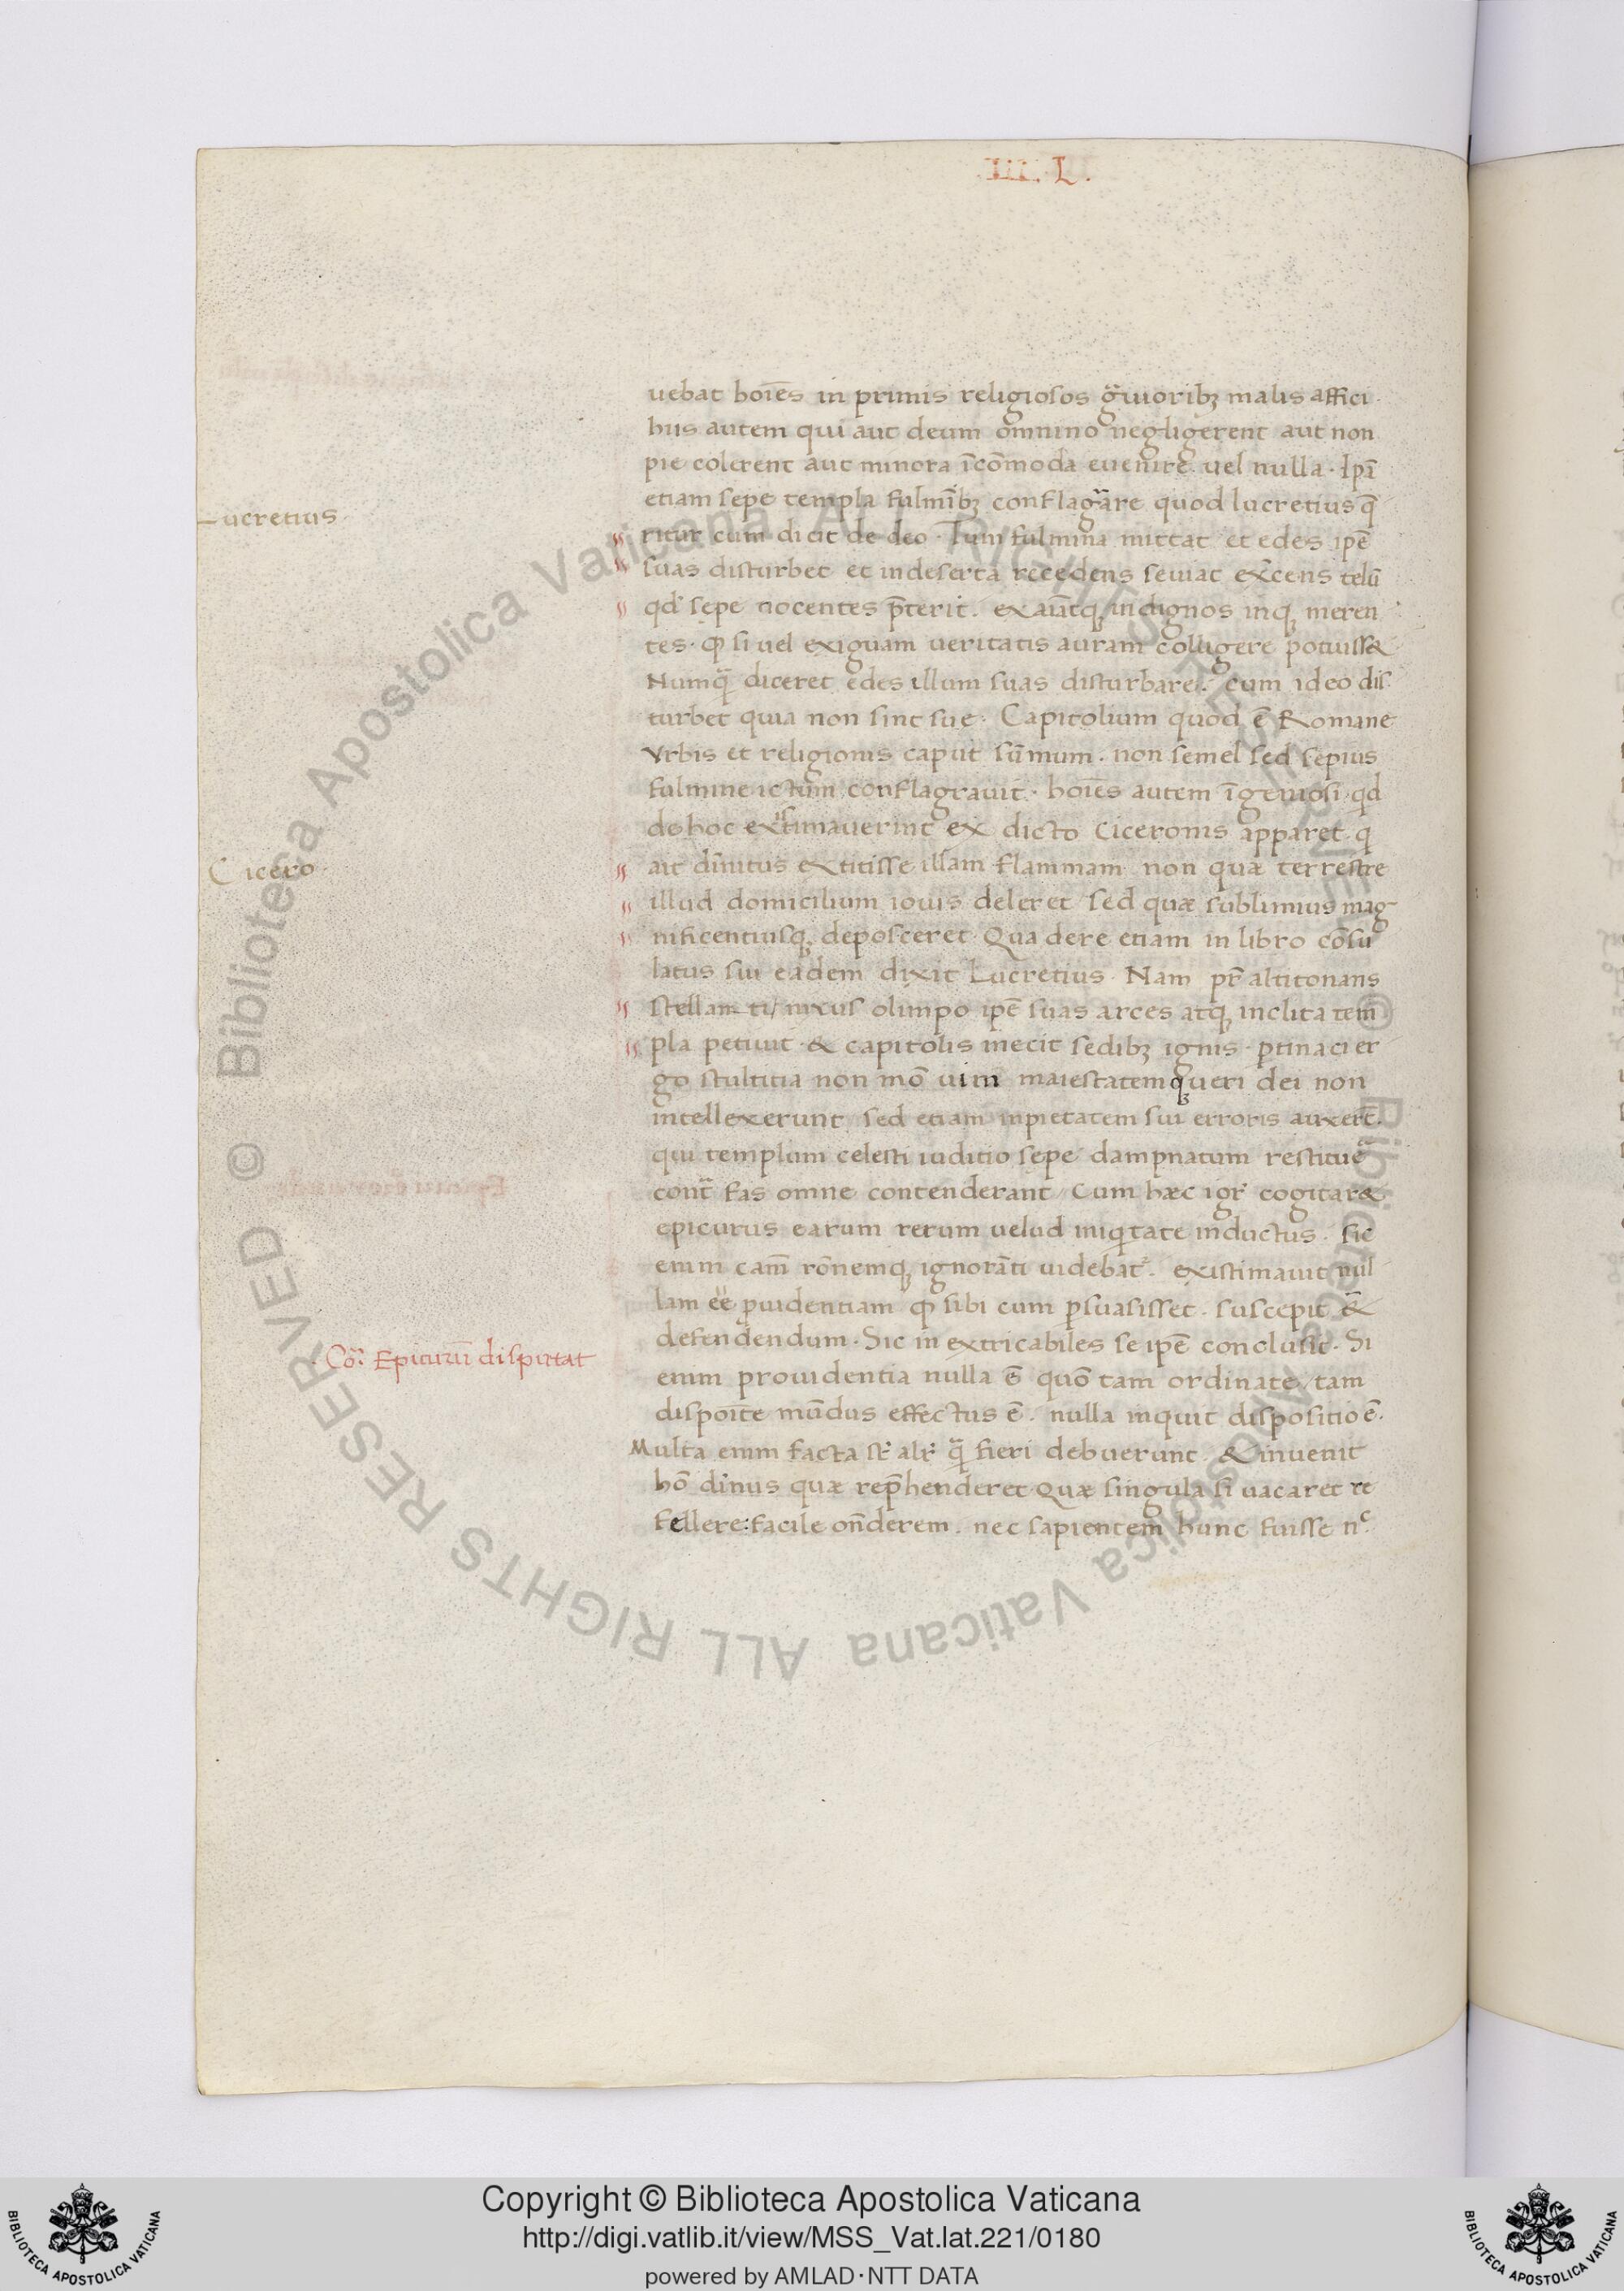 .III. L.
uebat hoīes in primis religiosos g̃uioribꝫ malis affici.
hiis autem qui aut deum omnino negligerent aut non
pie colerent aut minora īcōmoda euenire. uel nulla. Ipā
etiam sepe templa fulmībꝫ conflag̃are quod lucretius q̄
Lucretius.
ritur cum dicit de deo. Tum fulmina mittat et edes ip̄e
suas disturbet et in deserta recedens seuiat ex̄cens telū
qd' sepe nocentes p̄terit. exaīatqꝫ indignos inqꝫ meren
tes. Ꝙ si uel exiguam ueritatis auram colligere potuiss&
Numq̃ diceret edes illum suas disturbare. cum ideo dis
turbet quia non sint sue. Capitolium quod ē Romane
Vrbis et religionis caput sūmum. non semel sed sepius
fulmine ictum conflagrauit. hoīes autem īgeniosi qd
de hoc extimauerint ex dicto Ciceronis apparet. q
Cicero.
ait diīnitus extitisse illam flammam non quæ terrestre
illud domicilium iouis deleret sed quæ sublimius mag-
nificentiusqꝫ deposceret Qua de re etiam in libro cōsu
latus sui eadem dixit Lucretius. Nam pr̄ altitonans
stellanti nixus olimpo ip̄e suas arces atqꝫ inclita tem
pla petiuit. & capitolis iniecit sedibꝫ ignis. ptinaci er
go stultitia non mō uim maiestatemqꝫ ueri dei non
intellexerunt sed etiam inpietatem sui erroris auxert̄.
qui templum celesti iuditio sepe dampnatum restitue
cont̃ fas omne contenderant Cum hæc igr̄ cogitar&
epicurus earum rerum uelud iniq'tate inductus. sic
enim cam̄ rōnemqꝫ ignorāti uidebat'. existimauit nul
lam ēe ꝓuidentiam ꝙ sibi cum ꝑsuasisset. suscepit &̄
defendendum. Sic in extricabiles se ip̄e conclusit. Si
.Cō: Epicurū disputat
enim prouidentia nulla ē quō tam ordinate / tam
dispoīte mūdus effectus ē. nulla inquit dispositio ē.
Multa enim facta st' alr' q̃ fieri debuerunt. & inuenit
hō diīnus quæ rep̄henderet Quæ singula si uacaret re
fellere: facile on̄derem. nec sapientem hunc fuisse nc
Copyright © Biblioteca Apostolica Vaticana
http://digi.vatlib.it/view/MSS_Vat.lat.221/0180
powered by AMLAD·NTT DATA
BIBLIOTECA APOSTOLICA VATICANA
BIBLIOTECA APOSTOLICA VATICANA
© Biblioteca Apostolica Vaticana ALL RIGHTS RESERVED © Biblioteca Apostolica Vaticana ALL RIGHTS RESERVED